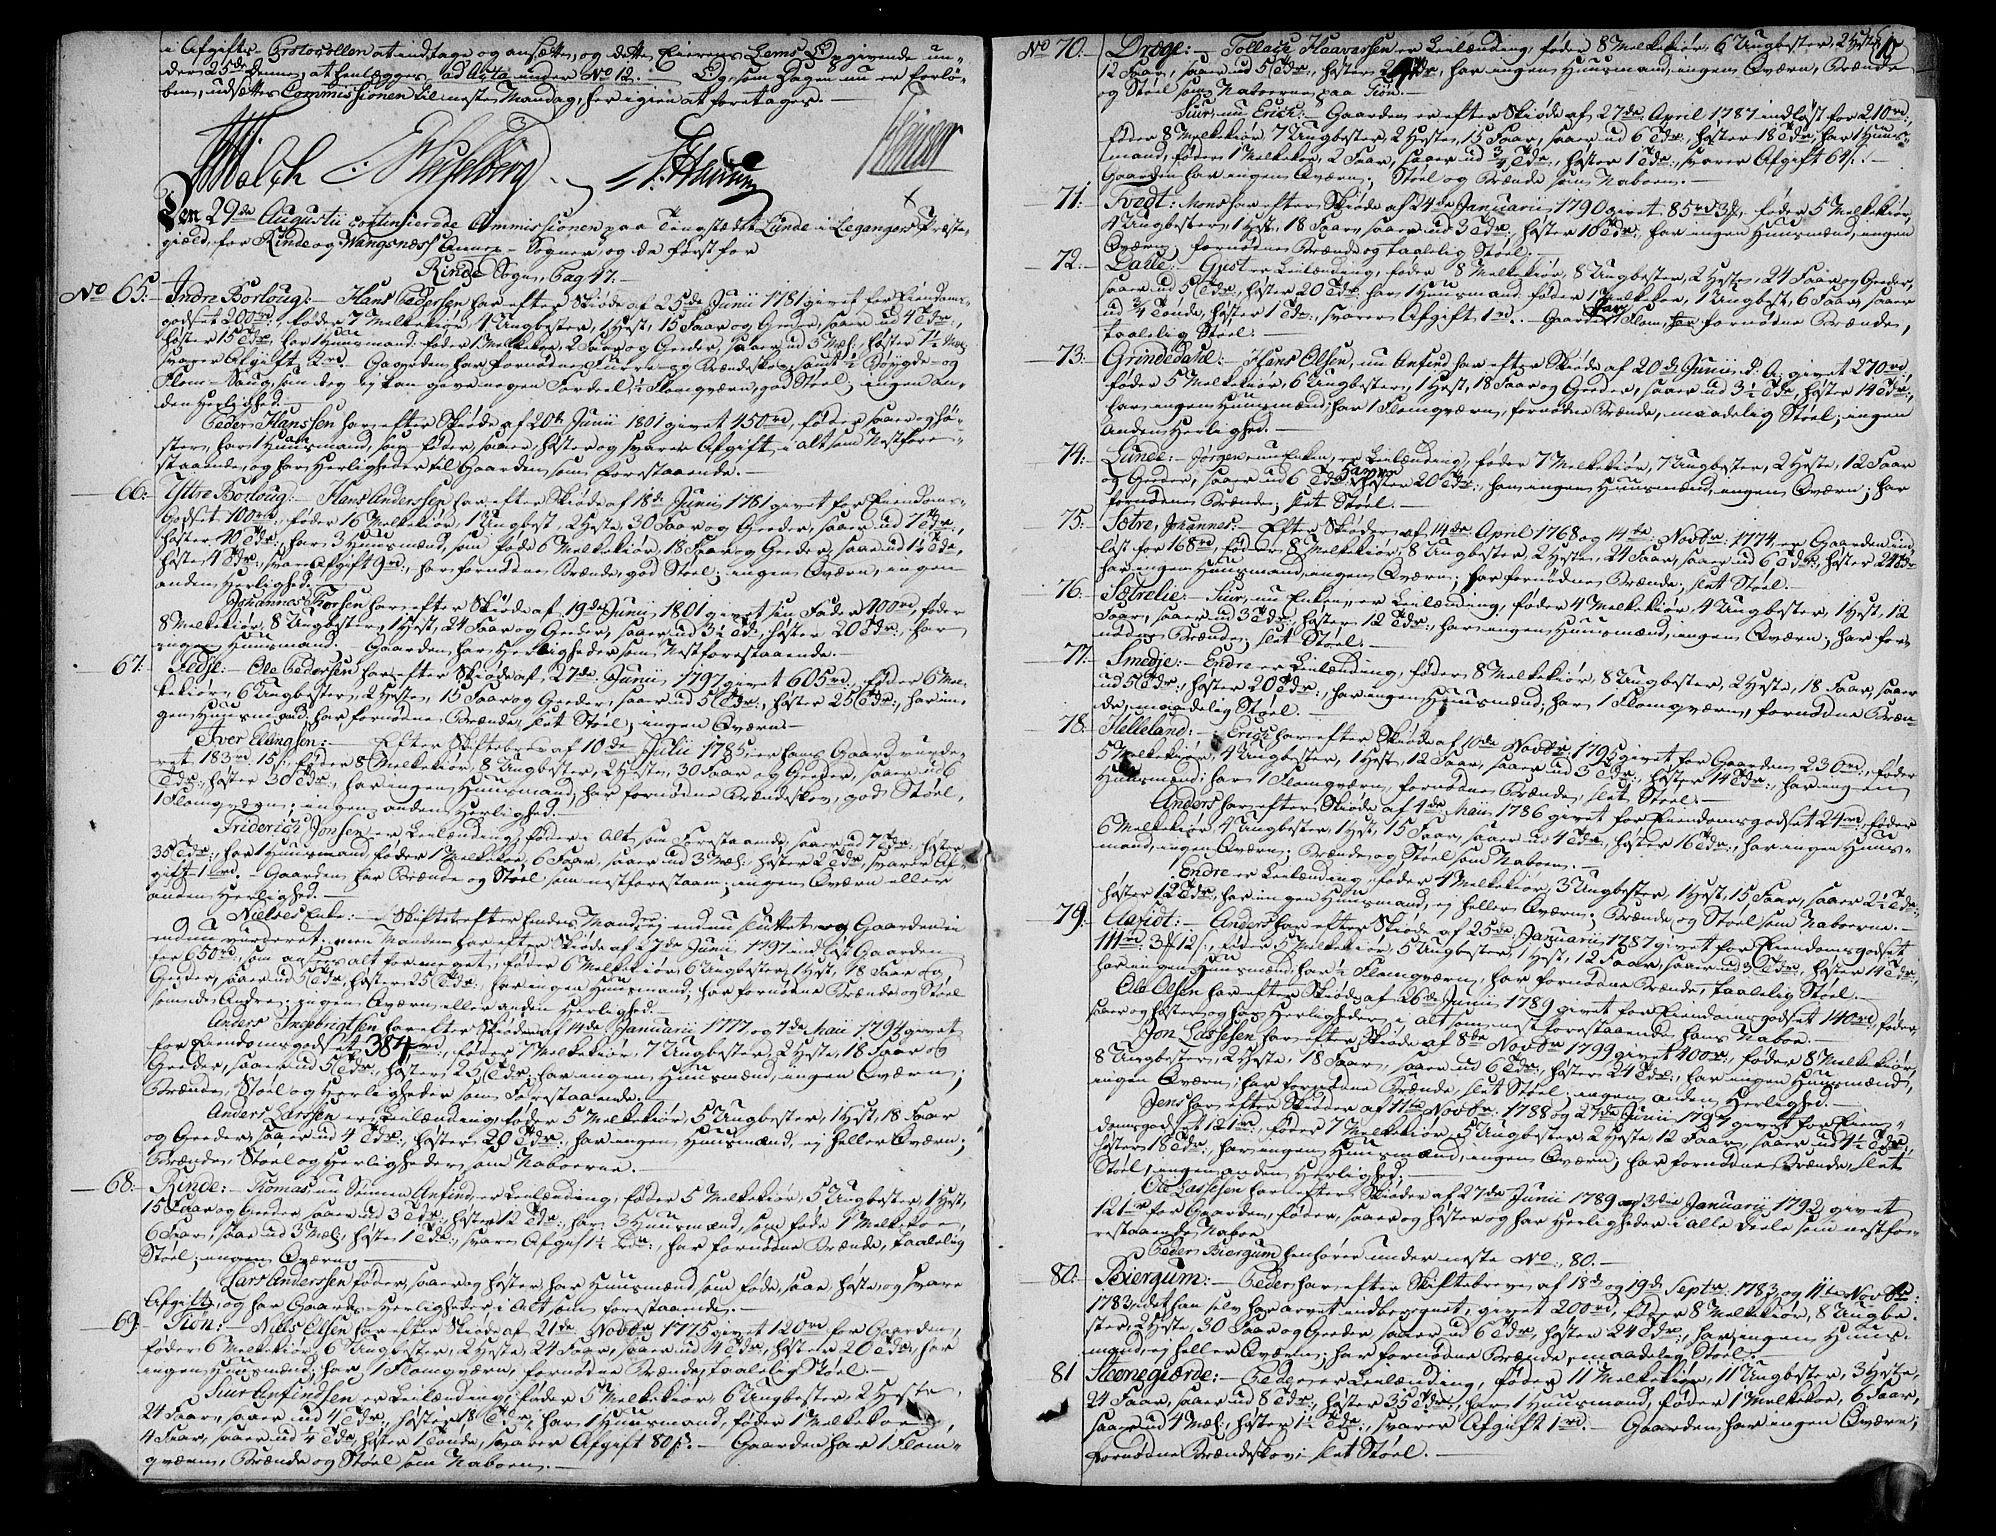 i Afgifts-Protocollen at indtage og ansætte, og dette Eierens Lems Opgivende un-
der 25de Dennes, at henlægges ad Acta under No 12. — Og, som Dagen nu er forlø-
ben, udsættes Commissionen til nestes Mandag, her igien at foretages. —
Den 29de Augustii continuerede Commissionen paa Tingstædet Lunde i Leganger Præste-
gield, for Rinde og Wangsness Annex-Sogner og da først for
Rinde Sogn, Pag 47: —
No 65: Indre Borloug: — Hans Pedersen har efter Skiøde af 25de Junii 1781 givet for Eiendoms-
godset 200rd, føder 7 Melkekiør, 4 Ungbester, 1 Hest, 15 Faar og Geeder, saaer ud 4 Tdr.,
høster 15 Tdr, har 1 Huusmand, føder 1 Melkekoe, 2 Faar og Geeder, saaer ud 3 Mæl:, høster 1½ Tdr,
svarer Afgift 2rd. — Gaarden har fornøden Furre- og Brændeskov, samt ½ Bøygde- og
Flom-Saug, som dog ej kan give nogen Fordeel, ½ Flomqværn, god Støel; ingen an-
den Herlighed. —
Peder Hanssen har efter Skiøde af 20de Junii 1801 givet 450rd, føder, saaer og hø-
ster, har 1 Huusmand, som føder, saaer, høster og svarer Afgift, i alt som Nestfore-
staaende, og har Herligheder til Gaarden som Forestaaende. —
66: Yttre Borloug: — Hans Anderssen har efter Skiøde af 18de Junii 1781 givet for Eiendoms-
Godset 700rd, føder 16 Melkekiør, 1 Ungbest, 2 Heste, 30 Faar og Geeder, saaer ud 7 Tdr.,
høster 40 Tdr, har 3 Huusmænd, som føde 6 Melkekiør, 18 Faar og Geeder, saaer ud 1½ Tdr,
høste 4 Tdr, svare Afgift 9rd, har fornødne Brænde, god Støel; ingen Qværn, ingen
anden Herlighed. —
Johannes Thorsen har efter Skiøde af 19de Junii 1801 givet sin Fader 400rd, føder
8 Melkekiør, 8 Ungbester, 1 Hest, 24 Faar og Geeder, saaer ud 3½ Tdr, høster 20 Tdr., har
ingen Huusmand; Gaarden har Herligheder som Nestforestaaende. —
67: Fedje: — Ole Pedersen har efter Skiøde af 27de Junii 1797 givet 605rd, føder 6 Mel-
kekiør, 6 Ungbester, 2 Heste, 15 Faar og Geeder, saaer ud 5 Tdr., høster 25 Tdr., har in-
gen Huusmand, har fornødne Brænde, slet Støel; ingen Qværn —
Iver Ellingsen: — Efter Skiftebrev af 10de Julii 1785, er hans Gaard vurde-
ret 183rd 15ß, føder 8 Melkekiør, 8 Ungbester, 2 Heste, 30 Faar og Geeder, saaer ud 6
Tdr:, høster 30 Tdr:, har ingen Huusmand, har fornødne Brændeskov, god Støel,
1 Flomqværn; ingen anden Herlighed. —
Friderich Jonsen er Leilænding, føder i Alt, som Forestaaende, saaer ud 7 Tdr:, høster
35 Tdr:, har 1 Huusmand, føder 1 Melkekoe, 6 Faar, saaer ud 3 Mæl:, høster 2 Tdr, svarer Af-
gift 1rd. — Gaarden har Brænde og Støel, som nestforestaaen:; ingen Qværn eller
anden Herlighed. —
Nielses Enke: — Skiftet efter hendes Mand er ej endnu sluttet, og Gaarden ei
endnu vurderet; men Manden har efter Skiøde af 27de Junii 1797 indløst Gaarden
for 650rd, om ansees alt for meget, føder 6 Melkekiør, 6 Ungbester, 1 Hest, 18 Faar og
Geeder, saaer ud 5 Tdr, høster 25 Tdr:, har ingen Huusmand; har fornødne Brænde og Støel
som de Andre; ingen Qværn eller anden Herlighed. —
Anders Ingebrigtsen har efter Skiøder af 14de Januarii 1777 og 7de Maii 1794 givet
for Eiendomsgodset 384rd., føder 7 Melkekiør, 7 Ungbester, 2 Heste, 18 Faar og
Geeder, saaer ud 5 Tdr:, høster 25 Tdr:, har ingen Huusmænd, ingen Qværn;
Brænde, Støel og Herligheder som Forestaaende. —
Anders Larssen er Leilænding, føder 5 Melkekiør, 5 Ungbester, 1 Hest, 18 Faar
og Geeder, saaer ud 4 Tdr:, høster 20 Tdr:, har ingen Huusmænd, ej heller Qværn;
Brænde, Støel og Herligheder som Naboerne. —
68: Rinde: — Thomas, nu Sønnen Anfind, er Leilænding, føder 5 Melkekiør, 5 Ungbester, 1 Hest,
15 Faar og Geeder, saaer ud 3 Tdr:, høster 12 Tdr:, har 3 Huusmænd, som føde 1 Melkekoe,
6 Faar, saaer ud 3 Mæl:, høste 1 Tdr:, svare Afgift 1½ rd:, har fornødne Brænde, taalelig
Støel; ingen Qværn. —
Lars Anderssen føder, saaer og høster, har Huusmænd som føde, saae, høste, og svare
Afgift, og har Gaards-Herligheder i Alt som forestaaende. —
69: Tiøn: — Niels Olsen har efter Skiøde af 21de Novbr 1775 givet 120rd for Gaarden,
føder 6 Melkekiør, 6 Ungbester, 2 Heste, 24 Faar, saaer ud 4 Tdr, høster 20 Tdr, har
ingen Huusmænd; har 1 Flomqværn, fornødne Brænde, taalelig Støel. —
Siur Anfindsen er Leilænding, føder 5 Melkekiør, 6 Ungbester, 2 Heste,
24 Faar, saaer ud 4 Tdr:, høster 18 Tdr:, har 1 Huusmand, føder 1 Melkekoe,
4 Faar, saaer ud ¼ Tdr, høster 1 Tønde, svarer Afgift 80ß. — Gaarden har 1 Flom-
qværn, Brænde og Støel som Naboen. —
No 70: Dræge: — Tollach Haavarssen er Leilænding, føder 8 Melkekiør, 6 Ungbester, 2 Heste,
12 Faar, saaer ud 5 Tdr:, høster Tdr:, har ingen Huusmand, ingen Qværn, Brænde
og Støel som Naboerne paa Tiøn. —
Siur, nu Erich: — Gaarden er efter Skiøde af 27de April 1787 indløst for 210rd,
føder 8 Melkekiør, 7 Ungbester, 2 Heste, 15 Faar, saaer ud 6 Tdr:, høster 18 Tdr:, har 1 Huus-
mand, føder 1 Melkekoe, 2 Faar, saaer ud ¾ Tdr:, høster 1 Tdr:, svarer Afgift 64ß. —
Gaarden har ingen Qværn; Støel og Brænde som Naboen. —
71: Tvedt: Mons har efter Skiøde af 24de Januarii 1790 givet 85rd 3, føder 5 Melkekiør,
4 Ungbester, 1 Hest, 18 Faar, saaer ud 3 Tdr:, høster 10 Tdr:, har ingen Huusmænd, ingen
Qværn; fornødne Brænde og taalelig Støel. —
72: Dahle: — Giest er Leilænding, føder 8 Melkekiør, 8 Ungbester, 2 Heste, 24 Faar og Geeder,
saaer ud 5 Tdr:, høster 20 Tdr: har 1 Huusmand, føder 1 Melkekoe, 1 Ungbest, 6 Faar, saaer
ud ¾ Tønde, høster 1 Tdr:, svarer Afgift 1rd. — Gaarden har 1 Flom, har fornødne Brænde,
taalelig Støel. —
73: Grindedahl: — Hans Olsen, nu Anfind har efter Skiøde af 20de Junii, d: A: givet 270rd,
føder 5 Melkekiør, 6 Ungbester, 1 Hest, 18 Faar og Geeder, saaer ud 3½ Tdr, høster 14 Tdr:,
har ingen Huusmænd; har 1 Flomqværn, fornødne Brænde, maadelig Støel; ingen
Anden Herlighed. —
74: Lunde: — Jørgen nu Enken, er Leilænding, føder 7 Melkekiør, 7 Ungbester, 2 Heste, 12 Faar
og Geeder, saaer ud 6 Tdr høster 20 Tdr:, har ingen Huusmænd, ingen Qværn; har
fornødne Brænde; slet Støel. —
75: Sætre, Johannes: — Efter Skiøder af 14de April 1768 og 14de Novbr: 1774, er Gaarden ind-
løst for 168rd, føder 8 Melkekiør, 8 Ungbester, 2 Heste, 24 Faar, saaer ud 6 Tdr:, høster 24 Tdr
har ingen Huusmand, ingen Qværn; har fornødne Brænde; slet Støel.
76: Sætrelie: — Siur, nu Enken, er Leilænding, føder 4 Melkekiør, 4 Ungbester, 1 Hest, 12
Faar, saaer ud 3 Tdr:, høster 12 Tdr:, har ingen Huusmænd, ingen Qværn; har for-
nødne Brænde; slet Støel. —
77: Smedje: — Endre er Leilænding, føder 8 Melkekiør, 8 Ungbester, 2 Heste, 18 Faar, saaer
ud 5 Tdr:, høster 20 Tdr:, har ingen Huusmænd; har 1 Flomqværn, fornødne Bræn-
de, maadelig Støel. —
78: Helleland: — Erich har efter Skiøde af 10de Novbr 1795 givet for Gaarden 230rd, føder
5 Melkekiør, 4 Ungbester, 1 Hest, 12 Faar, saaer ud 3 Tdr:, høster 14 Tdr:, har ingen
Huusmænd; har 1 Flomqværn, fornødne Brænde, slet Støel. —
Anders har efter Skiøde af 4de Maii 1786 givet for Eiendomsgodset 24rd, føder
6 Melkekiør, 4 Ungbester, 1 Hest, 15 Faar, saaer ud 4 Tdr:, høster 16 Tdr:, har ingen Huus-
mand, ingen Qværn; Brænde og Støel som Naboen. —
Endre er Leilænding, føder 4 Melkekiør, 3 Ungbester, 1 Hest, 15 Faar, saaer 2½ Tdr:,
høster 12 Tdr:, har ingen Huusmand, ej heller Qværn; Brænde og Støel som Naboerne. —
79: — Anders har efter Skiøde af 25de Januarii 1787 givet for Eiendomsgodset
111rd 3 12ß, føder 5 Melkekiør, 5 Ungbester, 1 Hest, 12 Faar, saaer ud 3 Tdr:, høster 14 Tdr:,
har ingen Huusmænd, har ½ Flomqværn, har fornødne Brænde, taalelig Støel. —
Ole Olsen har efter Skiøde af 26de Junii 1789 givet for Eiendomsgodset 140rd, føder,
saaer og høster og har Herligheder i alt som nestforestaaende hans Naboe. —
Jon Lassesen har efter Skiøde af 8de Novbr 1799 givet 400rd, føder 8 Melkekiør,
8 Ungbester, 2 Heste, 18 Faar, saaer ud 6 Tdr:, høster 24 Tdr:, har ingen Huusmænd,
ingen Qværn; har fornødne Brænde, slet Støel; ingen anden Herlighed. —
Jens har efter Skiøder af 11te Novbr 1788 og 27de Junii 1797 givet for Eien-
domsgodset 121rd, føder 7 Melkekiør, 5 Ungbester, 2 Heste, 12 Faar, saaer ud 4½ Tdr,
høster 18 Tdr, har ingen Huusmænd, ingen Qværn; har fornødne Brænde, slet
Støel, ingen anden Herlighed. —
Ole Lassesen har efter Skiøder af 27de Junii 1789 og 3die Januarii 1792 givet
121rd for Gaarden, føder, saaer og høster og har Herligheder i alle Deele som nestfor-
restaaende Naboe. —
Peder Biergum henføres under neste No: 80. —
80: Biergum: — Peder har efter Skiftebreve af 18de og 19de Septr. 1783, og 11te Novbr:
1783, det han selv har arvet iberegnet, givet 200rd, føder 8 Melkekiør, 8 Ungbe-
ster, 2 Heste, 30 Faar og Geeder, saaer ud 6 Tdr, høster 24 Tdr:, har ingen Huus-
mand, ej heller Qværn; har fornødne Brænde, maadelig Støel. —
81 Steenegiærde: — Peder er Leilænding, føder 11 Melkekiør, 11 Ungbester, 3 Heste,
24 Faar, saaer ud 8 Tdr:, høster 35 Tdr:, har 1 Huusmand, føder 1 Melkekoe, 6 Faar,
saaer ud 4 Mæl:, høster 1½ Tdr:, svarer Afgift 1rd. — Gaarden har ingen Qværn;
fornødne Brændeskov; slet Støel. —